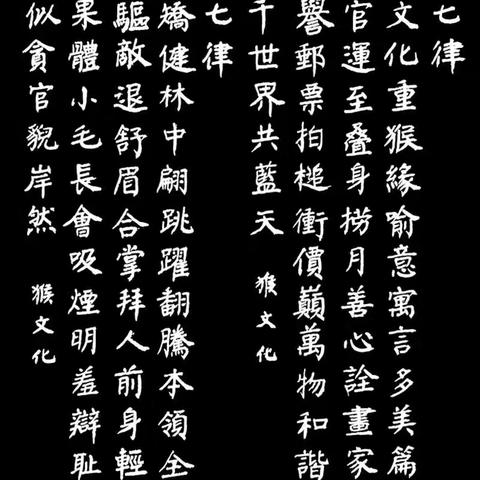 七律
文化重猴緣喻意寓言多美篇
官運至叠身捞月善心詮畫家
譽郵票拍槌衝價巔萬物和諧
千世界共藍天
猴文化
七律
矯健林中翩跳躍翻騰本領全
驅敵退舒眉合掌拜人前身輕
果體小毛長會吸煙明羞辯耻
似貪官貌岸然
猴文化